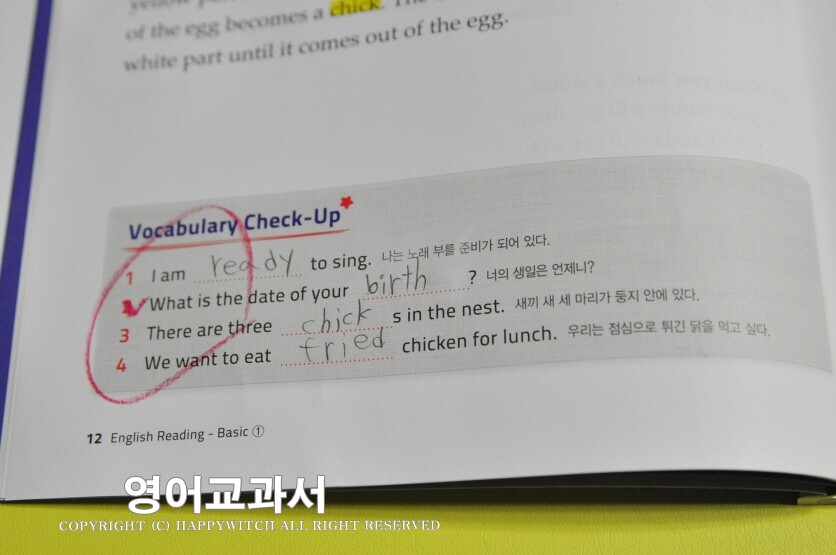 of the egg becomes a chick. The
white part until it comes out of the egg.
Vocabulary Check-Up
1 I am ready to sing. 나는 노래 부를 준비가 되어 있다.
2 What is the date of your birth ? 너의 생일은 언제니?
3 There are three chick s in the nest. 새끼 새 세 마리가 둥지 안에 있다.
4 We want to eat fried chicken for lunch. 우리는 점심으로 튀긴 닭을 먹고 싶다.
12 English Reading - Basic ①
영어교과서
COPYRIGHT (C) HAPPYWITCH ALL RIGHT RESERVED